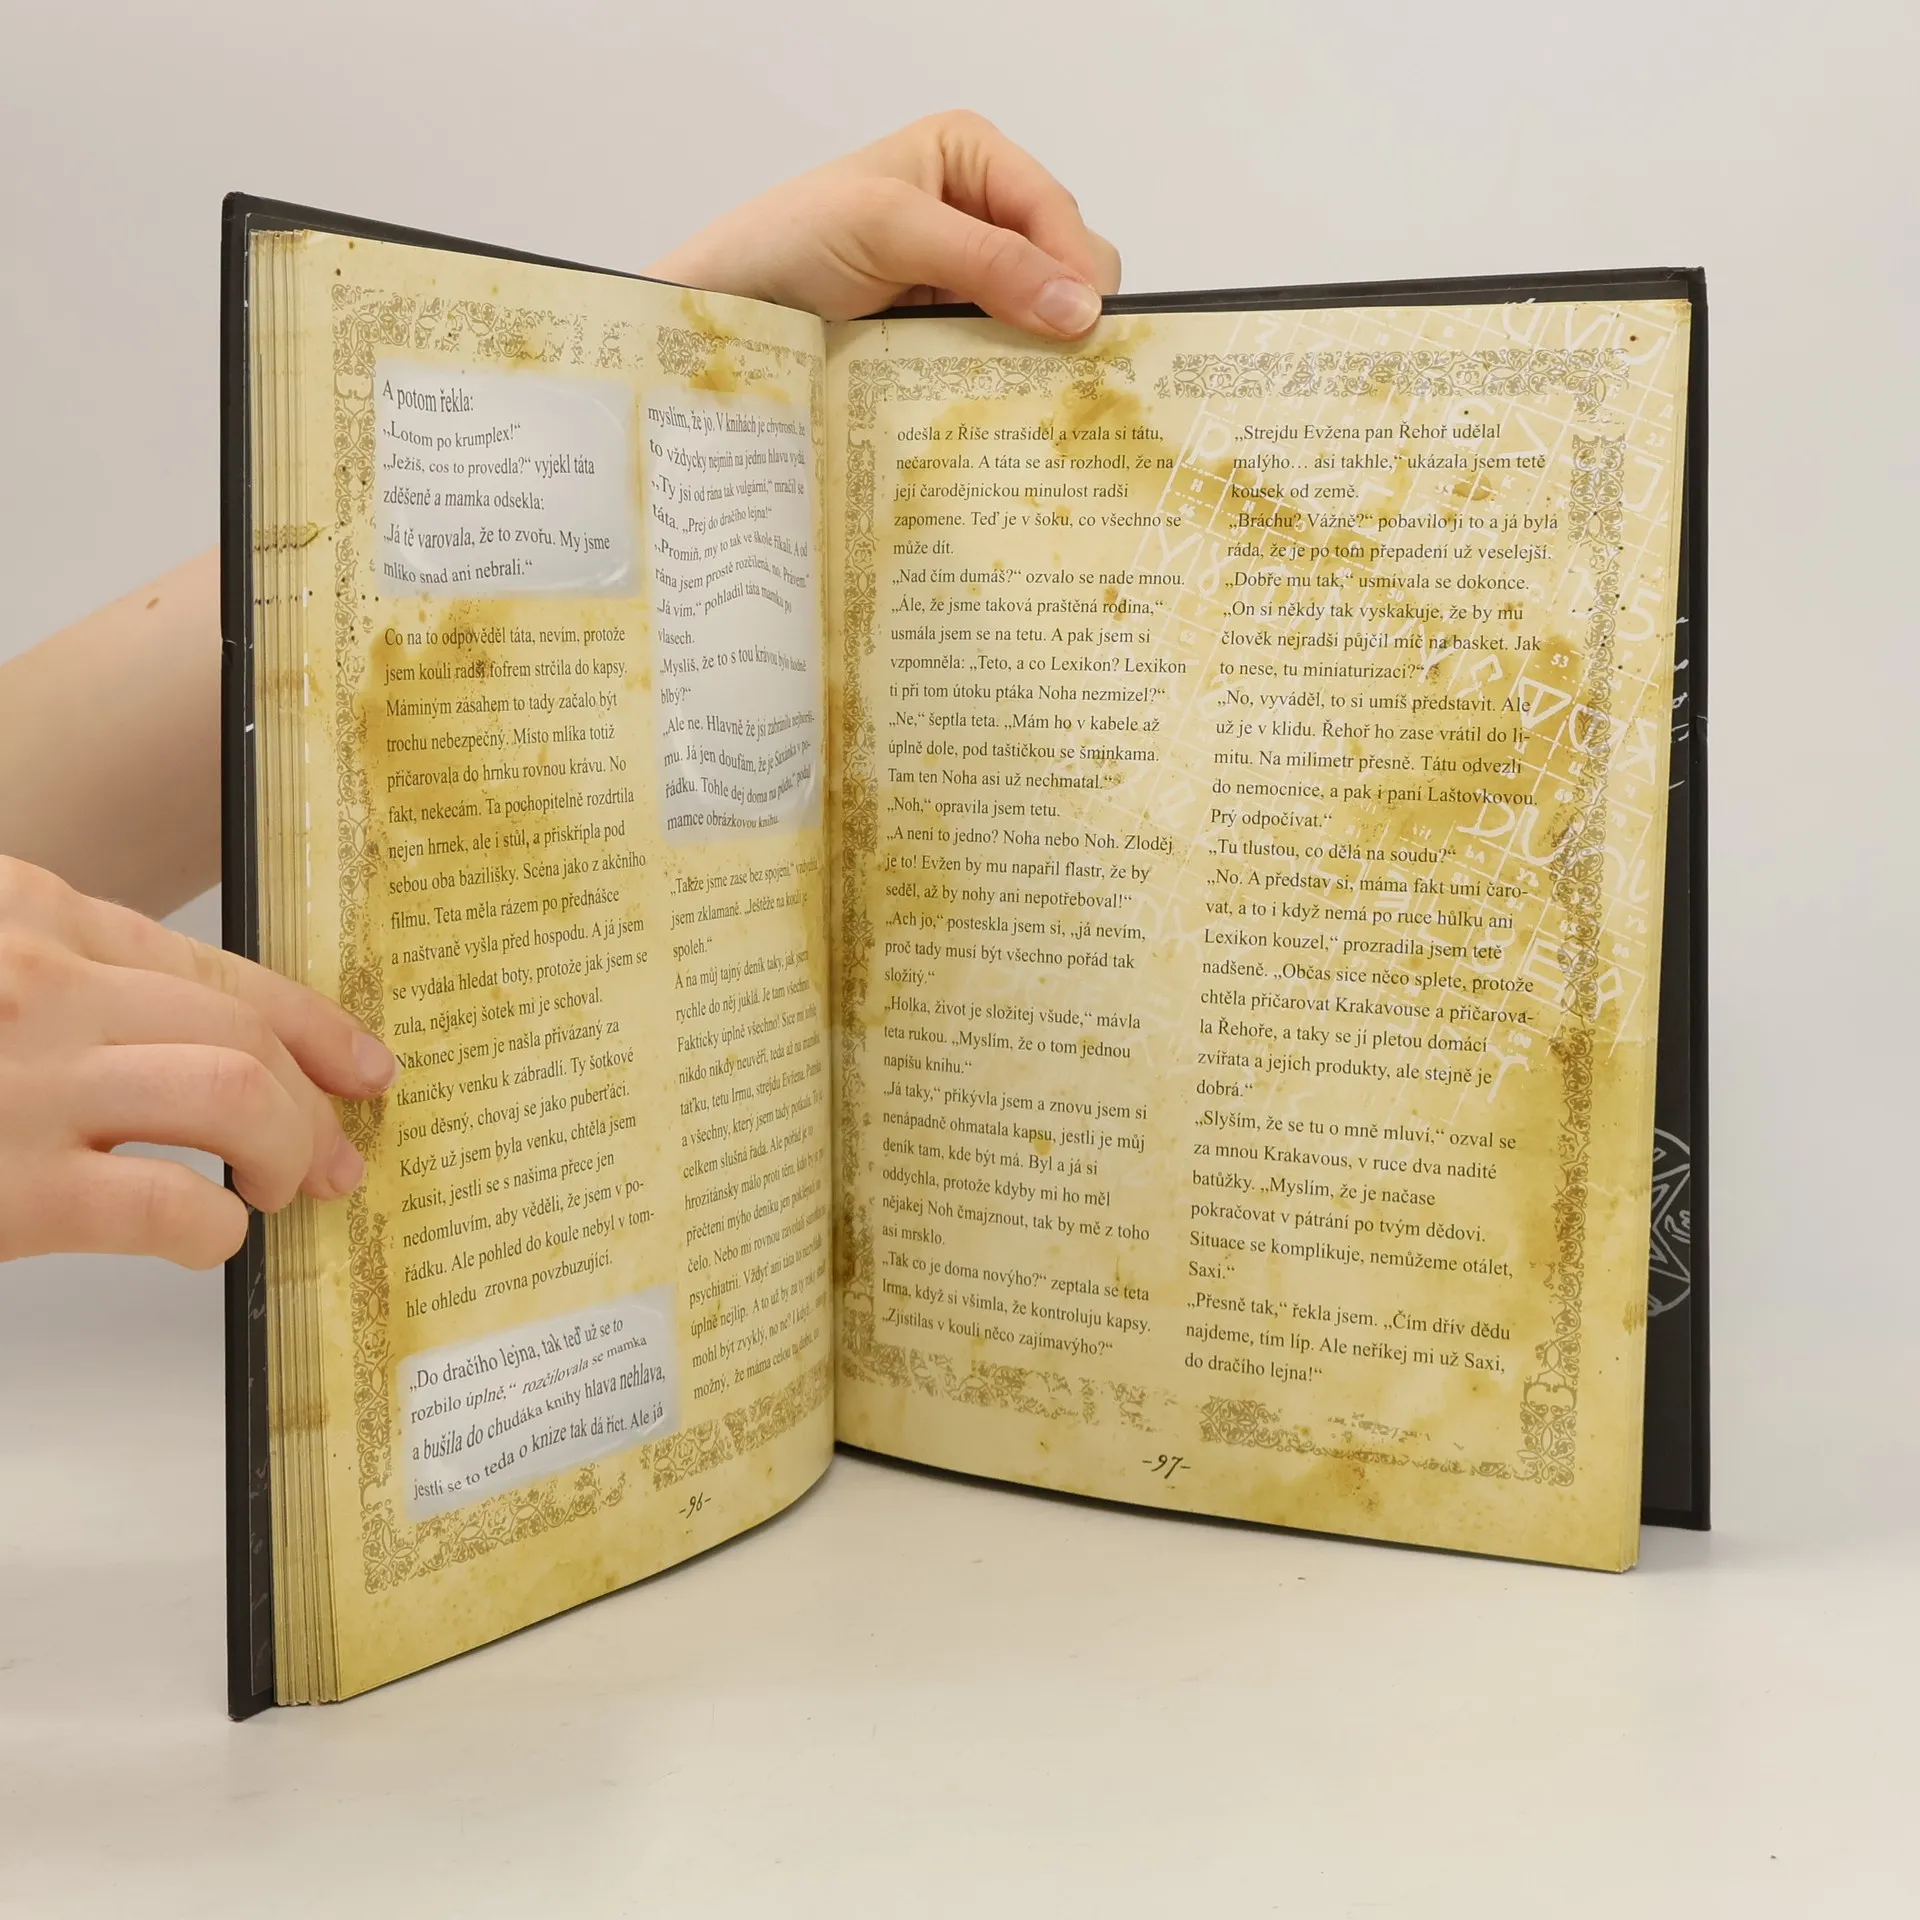 A potom řekla:
„Lotom po krumplex!“
„Ježiš, cos to provedla?“ vyjekl táta
zděšeně a mamka odsekla:
„Já tě varovala, že to zvořu. My jsme
mlíko snad ani nebrali.“
Co na to odpověděl táta, nevím, protože
jsem kouli radši fofrem strčila do kapsy.
Máminým zásahem to tady začalo být
trochu nebezpečný. Místo mlíka totiž
přičarovala do hrnku rovnou krávu. No
fakt, nekecám. Ta pochopitelně rozdrtila
nejen hrnek, ale i stůl, a přiskřípla pod
sebou oba bazilišky. Scéna jako z akčního
filmu. Teta měla rázem po přednášce
a naštvaně vyšla před hospodu. A já jsem
se vydala hledat boty, protože jak jsem se
zula, nějakej šotek mi je schoval.
Nakonec jsem je našla přivázaný za
tkaničky venku k zábradlí. Ty šotkové
jsou děsný, chovaj se jako puberťáci.
Když už jsem byla venku, chtěla jsem
zkusit, jestli se s našima přece jen
nedomluvím, aby věděli, že jsem v po-
řádku. Ale pohled do koule nebyl v tom-
hle ohledu zrovna povzbuzující.
„Do dračího lejna, tak teď už se to
rozbilo úplně,“ rozčilovala se mamka
a bušila do chudáka knihy hlava nehlava,
jestli se to teda o knize tak dá říct. Ale já
myslím, že jo. V knihách je chytrosti, že
to vždycky nejmíň na jednu hlavu vydá.
„Ty jsi od rána tak vulgární,“ mračil se
táta. „Prej do dračího lejna!“
„Promiň, my to tak ve škole říkali. A od
rána jsem prostě rozčilená, no. Právem.“
„Já vím,“ pohladil táta mamku po
vlasech.
„Myslíš, že to s tou krávou bylo hodně
blbý?“
„Ale ne. Hlavně že jsi zabránila nejhorší-
mu. Já jen doufám, že je Saxánka v po-
řádku. Tohle dej doma na půdu,“ podal
mamce obrázkovou knihu.
„Takže jsme zase bez spojení,“ vzdychla
jsem zklamaně. „Ještěže na kouli je
spoleh.“
A na můj tajný deník taky, jak jsem
rychle do něj juklá. Je tam všechno.
Fakticky úplně všechno! Sice mi tohle
nikdo nikdy neuvěří, teda až na mamku,
taťku, tetu Irmu, strejdu Evžena,
a všechny, který jsem tady potkala. To je
celkem slušná řada. Ale pořád je to
hrozitánsky málo proti těm, kdo by si po
přečtení mýho deníku jen poklepali na
čelo. Nebo mi rovnou zavolali sanitku na
psychiatrii. Vždyť ani táta to nezvládá
úplně nejlíp. A to už by za ty roky snad
mohl být zvyklý, no ne? I když...
možný, že máma celou tu dobu, co
-96-
odešla z Říše strašidel a vzala si tátu,
nečarovala. A táta se asi rozhodl, že na
její čarodějnickou minulost radši
zapomene. Teď je v šoku, co všechno se
může dít.
„Nad čím dumáš?“ ozvalo se nade mnou.
„Ále, že jsme taková praštěná rodina,“
usmála jsem se na tetu. A pak jsem si
vzpomněla: „Teto, a co Lexikon? Lexikon
ti při tom útoku ptáka Noha nezmizel?“
„Ne,“ šeptla teta. „Mám ho v kabele až
úplně dole, pod taštičkou se šminkama.
Tam ten Noha asi už nechmatal.“
„Noh,“ opravila jsem tetu.
„A není to jedno? Noha nebo Noh. Zloděj
je to! Evžen by mu napařil flastr, že by
seděl, až by nohy ani nepotřeboval!“
„Ach jo,“ posteskla jsem si, „já nevím,
proč tady musí být všechno pořád tak
složitý.“
„Holka, život je složitej všude,“ mávla
teta rukou. „Myslím, že o tom jednou
napíšu knihu.“
„Já taky,“ přikývla jsem a znovu jsem si
nenápadně ohmatala kapsu, jestli je můj
deník tam, kde být má. Byl a já si
oddychla, protože kdyby mi ho měl
nějakej Noh čmajznout, tak by mě z toho
asi mrsklo.
„Tak co je doma novýho?“ zeptala se teta
Irma, když si všimla, že kontroluju kapsy.
„Zjistilas v kouli něco zajímavýho?“
„Strejdu Evžena pan Řehoř udělal
malýho… asi takhle,“ ukázala jsem tetě
kousek od země.
„Bráchu? Vážně?“ pobavilo ji to a já byla
ráda, že je po tom přepadení už veselejší.
„Dobře mu tak,“ usmívala se dokonce.
„On si někdy tak vyskakuje, že by mu
člověk nejradši půjčil míč na basket. Jak
to nese, tu miniaturizaci?“
„No, vyváděl, to si umíš představit. Ale
už je v klidu. Řehoř ho zase vrátil do li-
mitu. Na milimetr přesně. Tátu odvezli
do nemocnice, a pak i paní Laštovkovou.
Prý odpočívat.“
„Tu tlustou, co dělá na soudu?“
„No. A představ si, máma fakt umí čaro-
vat, a to i když nemá po ruce hůlku ani
Lexikon kouzel,“ prozradila jsem tetě
nadšeně. „Občas sice něco splete, protože
chtěla přičarovat Krakavouse a přičarova-
la Řehoře, a taky se jí pletou domácí
zvířata a jejich produkty, ale stejně je
dobrá.“
„Slyším, že se tu o mně mluví,“ ozval se
za mnou Krakavous, v ruce dva nadité
batůžky. „Myslím, že je načase
pokračovat v pátrání po tvým dědovi.
Situace se komplikuje, nemůžeme otálet,
Saxi.“
„Přesně tak,“ řekla jsem. „Čím dřív dědu
najdeme, tím líp. Ale neříkej mi už Saxi,
do dračího lejna!“
-97-